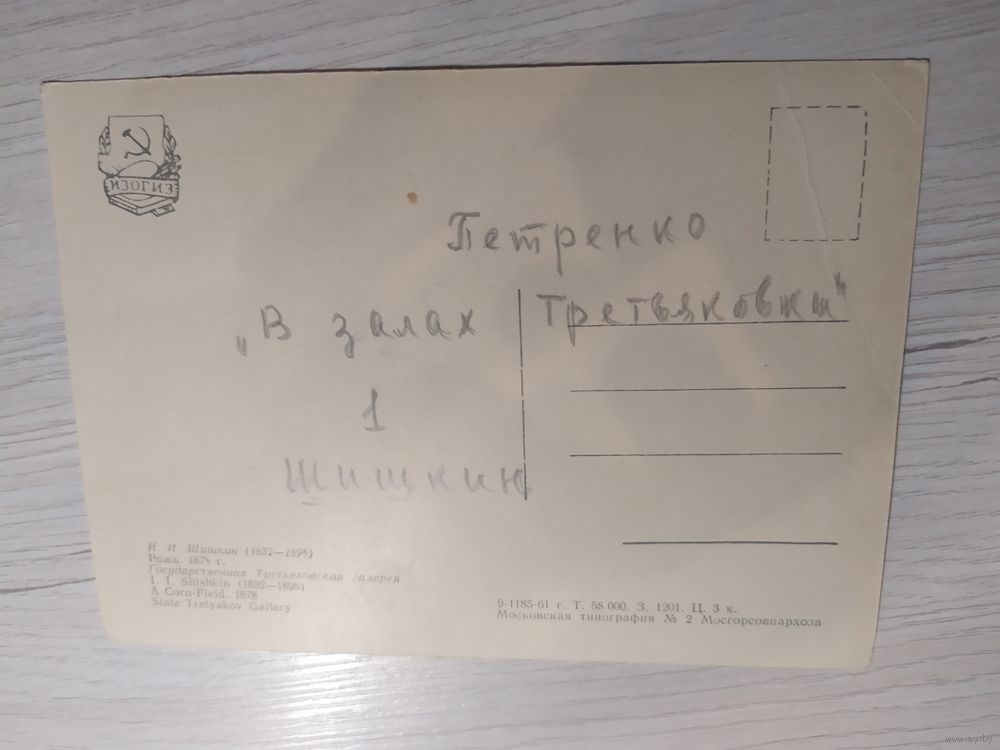 ИЗОГИЗ
Петренко
„В залах Третьяковки"
1
Шишкин
И И Шишкин (1832—1898)
Рожь. 1878 г.
Государственная Третьяковская галерея
I. I. Shishkin (1832—1898)
A Corn-Field. 1878
State Tretyakov Gallery
9-1185-61 г. Т. 58 000. З. 1201. Ц. 3 к.
Московская типография № 2 Мосгорсовнархоза
www.ay.by